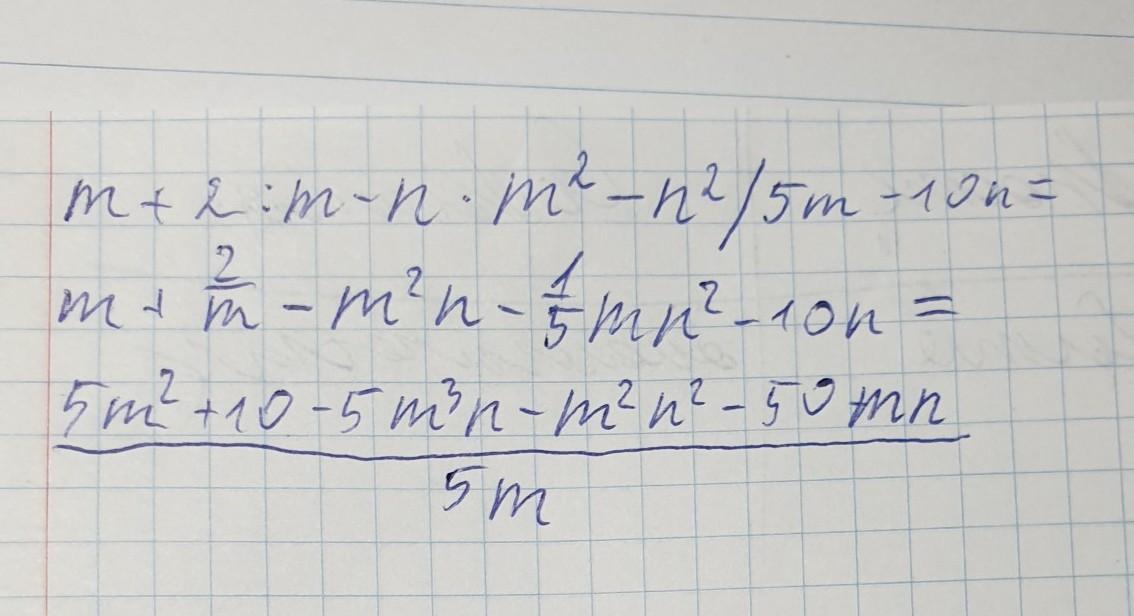 m + 2 : m - n · m² - n² / 5m - 10n =
m + 2/m - m²n - 1/5 mn² - 10n =
5m² + 10 - 5m³n - m²n² - 50mn
5m